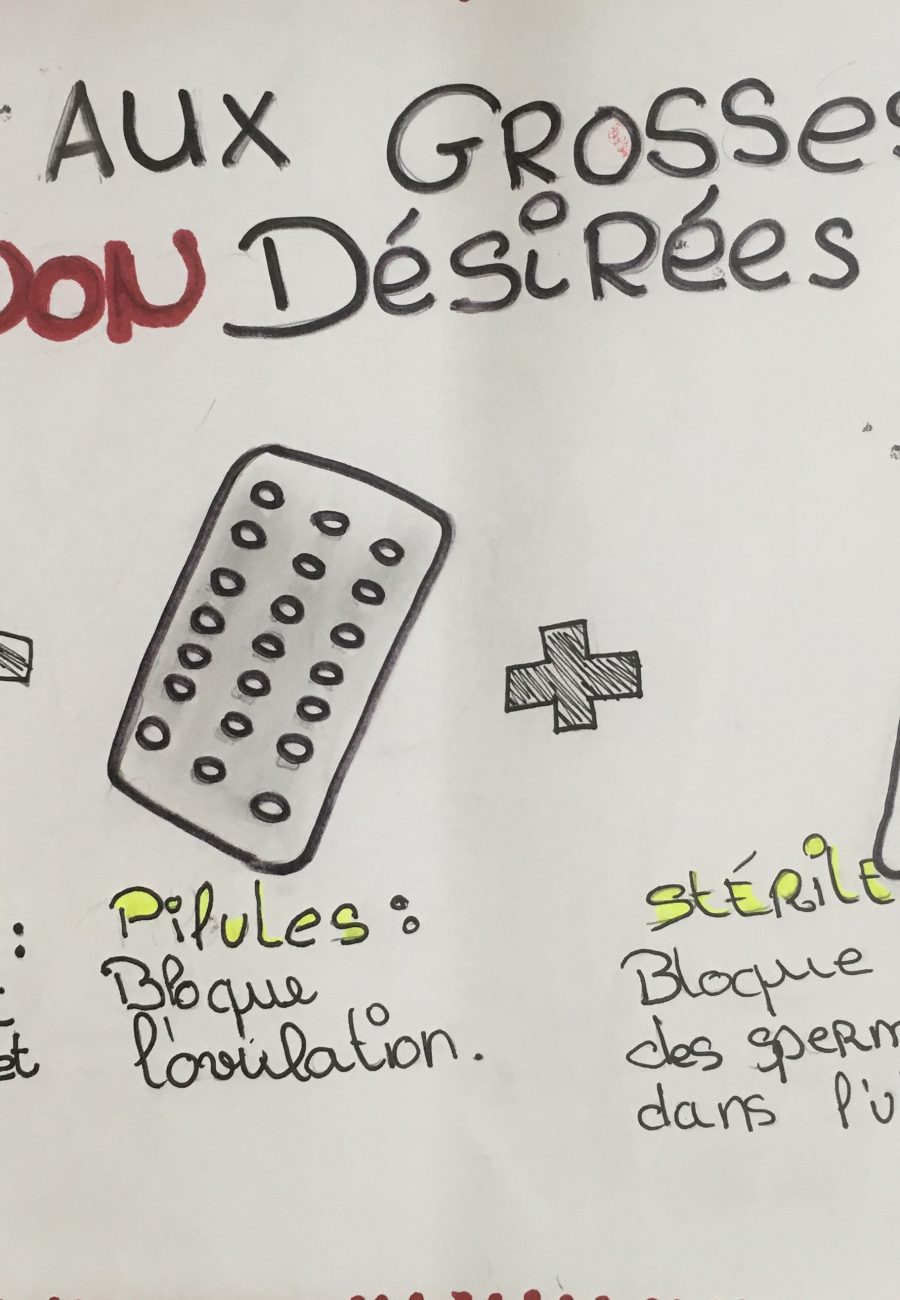 AUX GROSSES
NON DÉSIRÉES
Pilules :
Bloque
l'ovulation.
:
et
STÉRILE
Bloque
des sperm
dans l'u